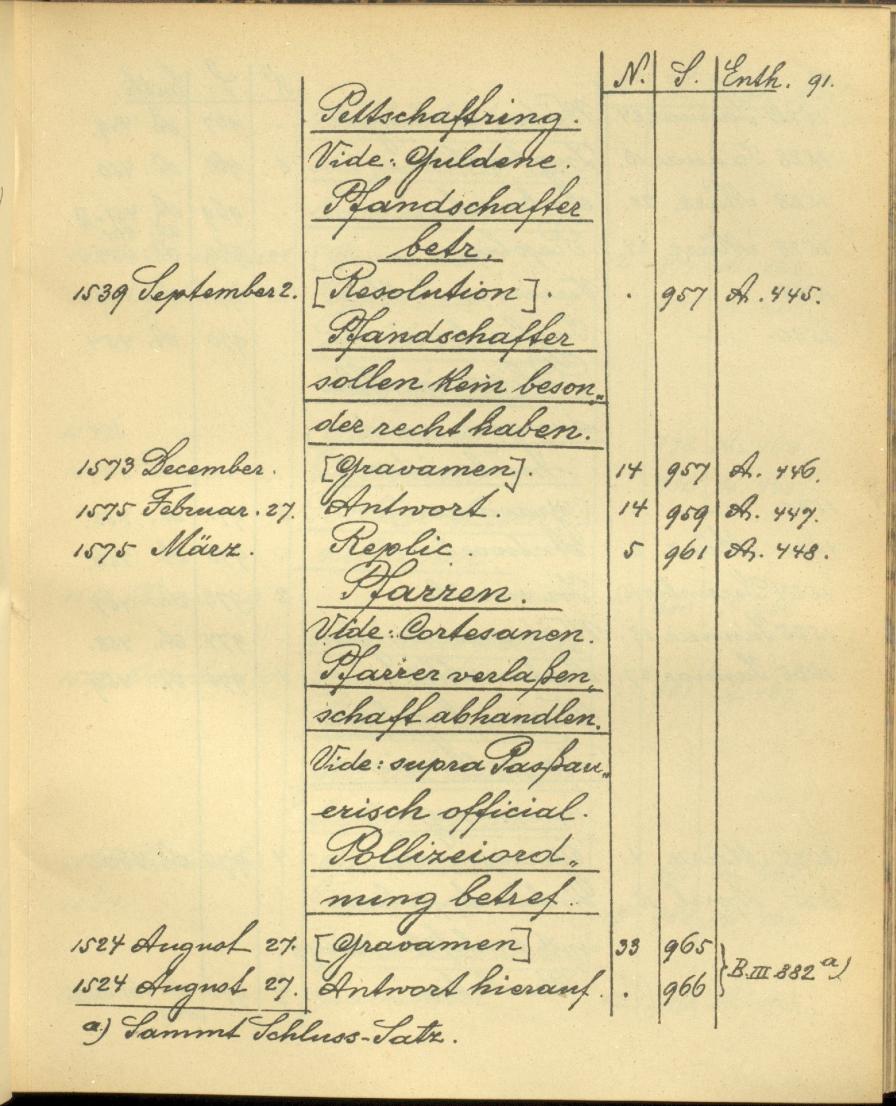 N. S. Enth. 91.
Pettschaftring.
Vide: Guldene.
Pfandschafter
betr.
1539 September 2. [Resolution]. . 957 A. 445.
Pfandschafter
sollen kein beson„
der recht haben.
1573 December. [Gravamen]. 14 957 A. 446.
1575 Februar. 27. Antwort. 14 959 A. 447.
1575 März. Replic. 5 961 A. 448.
Pfarren.
Vide: Cortesanen.
Pfarrer verlaßen„
schaft abhandlen.
Vide: supra Paßau„
erisch official.
Pollizeiord„
nung betref.
1524 August 27. [Gravamen] 33 965
1524 August 27. Antwort hierauf. . 966 } B. III 882 a)
a) Sammt Schluss-Satz.